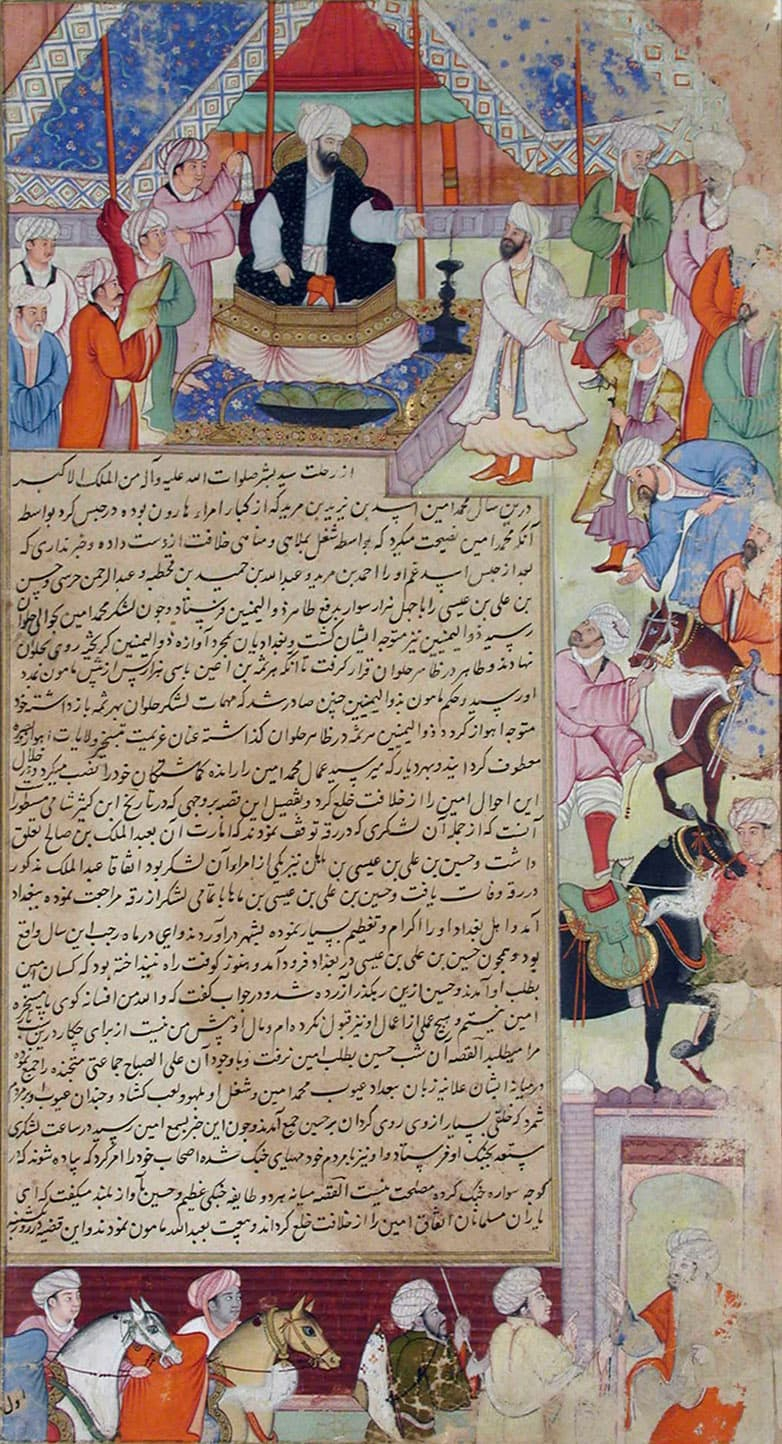 از رحلت سید بشر صلوات الله علیه و آله من الملک الاکبر
درین سال محمد امین اسد بن یزید بن مزید که از کبار امراء هارون بوده در حبس کرد بواسطه
آنکه محمد امین نصیحت میکرد که بواسطه شغل بملاهی و مناهی خلافت از دست داده و خبر نداری که
بعد از حبس اسد عم او را احمد بن مزید و عبدالله بن حمید بن قحطبه و عبدالرحمن حرسی و حسین
بن علی بن عیسی را با چهل هزار سوار بدفع طاهر ذوالیمینین فرستاد و چون لشکر محمد امین بحوالی حلوان
رسید ذوالیمینین نیز متوجه ایشان گشت و بغدادیان بمجرد آوازه ذوالیمینین گریخته روی بحلوان
نهادند و طاهر در ظاهر حلوان قرار گرفت تا آنکه هرثمه بن اعین با سی هزار کس از پیش مامون بمدد
او رسید و حکم مامون بذوالیمینین چنین صادر شد که مهمات لشکر حلوان بهرثمه باز داشته خود
متوجه اهواز گردد ذوالیمینین هرثمه در ظاهر حلوان گذاشته عنان عزیمت بتسخیر ولایات اهواز و بصره
معطوف گردانید و بهر دیار که میرسید عمال محمد امین را رانده گماشتگان خود را نصب میکرد و در خلال
این احوال امین را از خلافت خلع کرد و تفصیل این قصه بر وجهی که در تاریخ ابن کثیر شامی مسطور
آنست که از جمله آن لشکری که در رقه توقف نمودند که امارت آن بعبدالملک بن صالح تعلق
داشت و حسین بن علی بن عیسی بن ماهان نیز یکی از امراء آن لشکر بود اتفاقا عبدالملک مذکور
در رقه وفات یافت و حسین بن علی بن عیسی بن ماهان با تمامی لشکر از رقه مراجعت نموده ببغداد
آمد و اهل بغداد او را اکرام و تعظیم بسیار نموده بشهر درآوردند و این در ماه رجب این سال واقع
بود و چون حسین بن علی بن عیسی در بغداد فرود آمد و هنوز کوفت راه نینداخته بود که کسان امین
بطلب او آمدند و حسین ازین رهگذر آزرده شد و در جواب گفت که والله من افسانه گوی یا مسخره
امین نیستم و هیچ عملی از اعمال او نیز قبول نکرده ام و مال او پیش من نیست از برای چکار درین شب
مرا میطلبد القصه آن شب حسین بطلب امین نرفت و با وجود آن علی الصباح جماعتی متجنده را جمع نموده
در میانه ایشان علانیه زبان بعداد عیوب محمد امین و شغل او بلهو و لعب گشاد و چندان عیوب او بر مردم
شمرد که خلقی بسیار از وی روی گردان بر حسین جمع آمدند و چون این خبر بسمع امین رسید در ساعت لشکری
مستعد بجنگ او فرستاد و او نیز با مردم خود مهیای جنگ شده اصحاب خود را امر کرد که پیاده شوند که در
کوچه سواره جنگ کردن مصلحت نیست القصه میانه هر دو طایفه جنگی عظیم و حسین بآواز بلند میگفت که ای
یاران مسلمانان اتفاق امین را از خلافت خلع گردانند و بیعت بعبدالله مامون نمودند و این قضیه در روز یکشنبه
اول